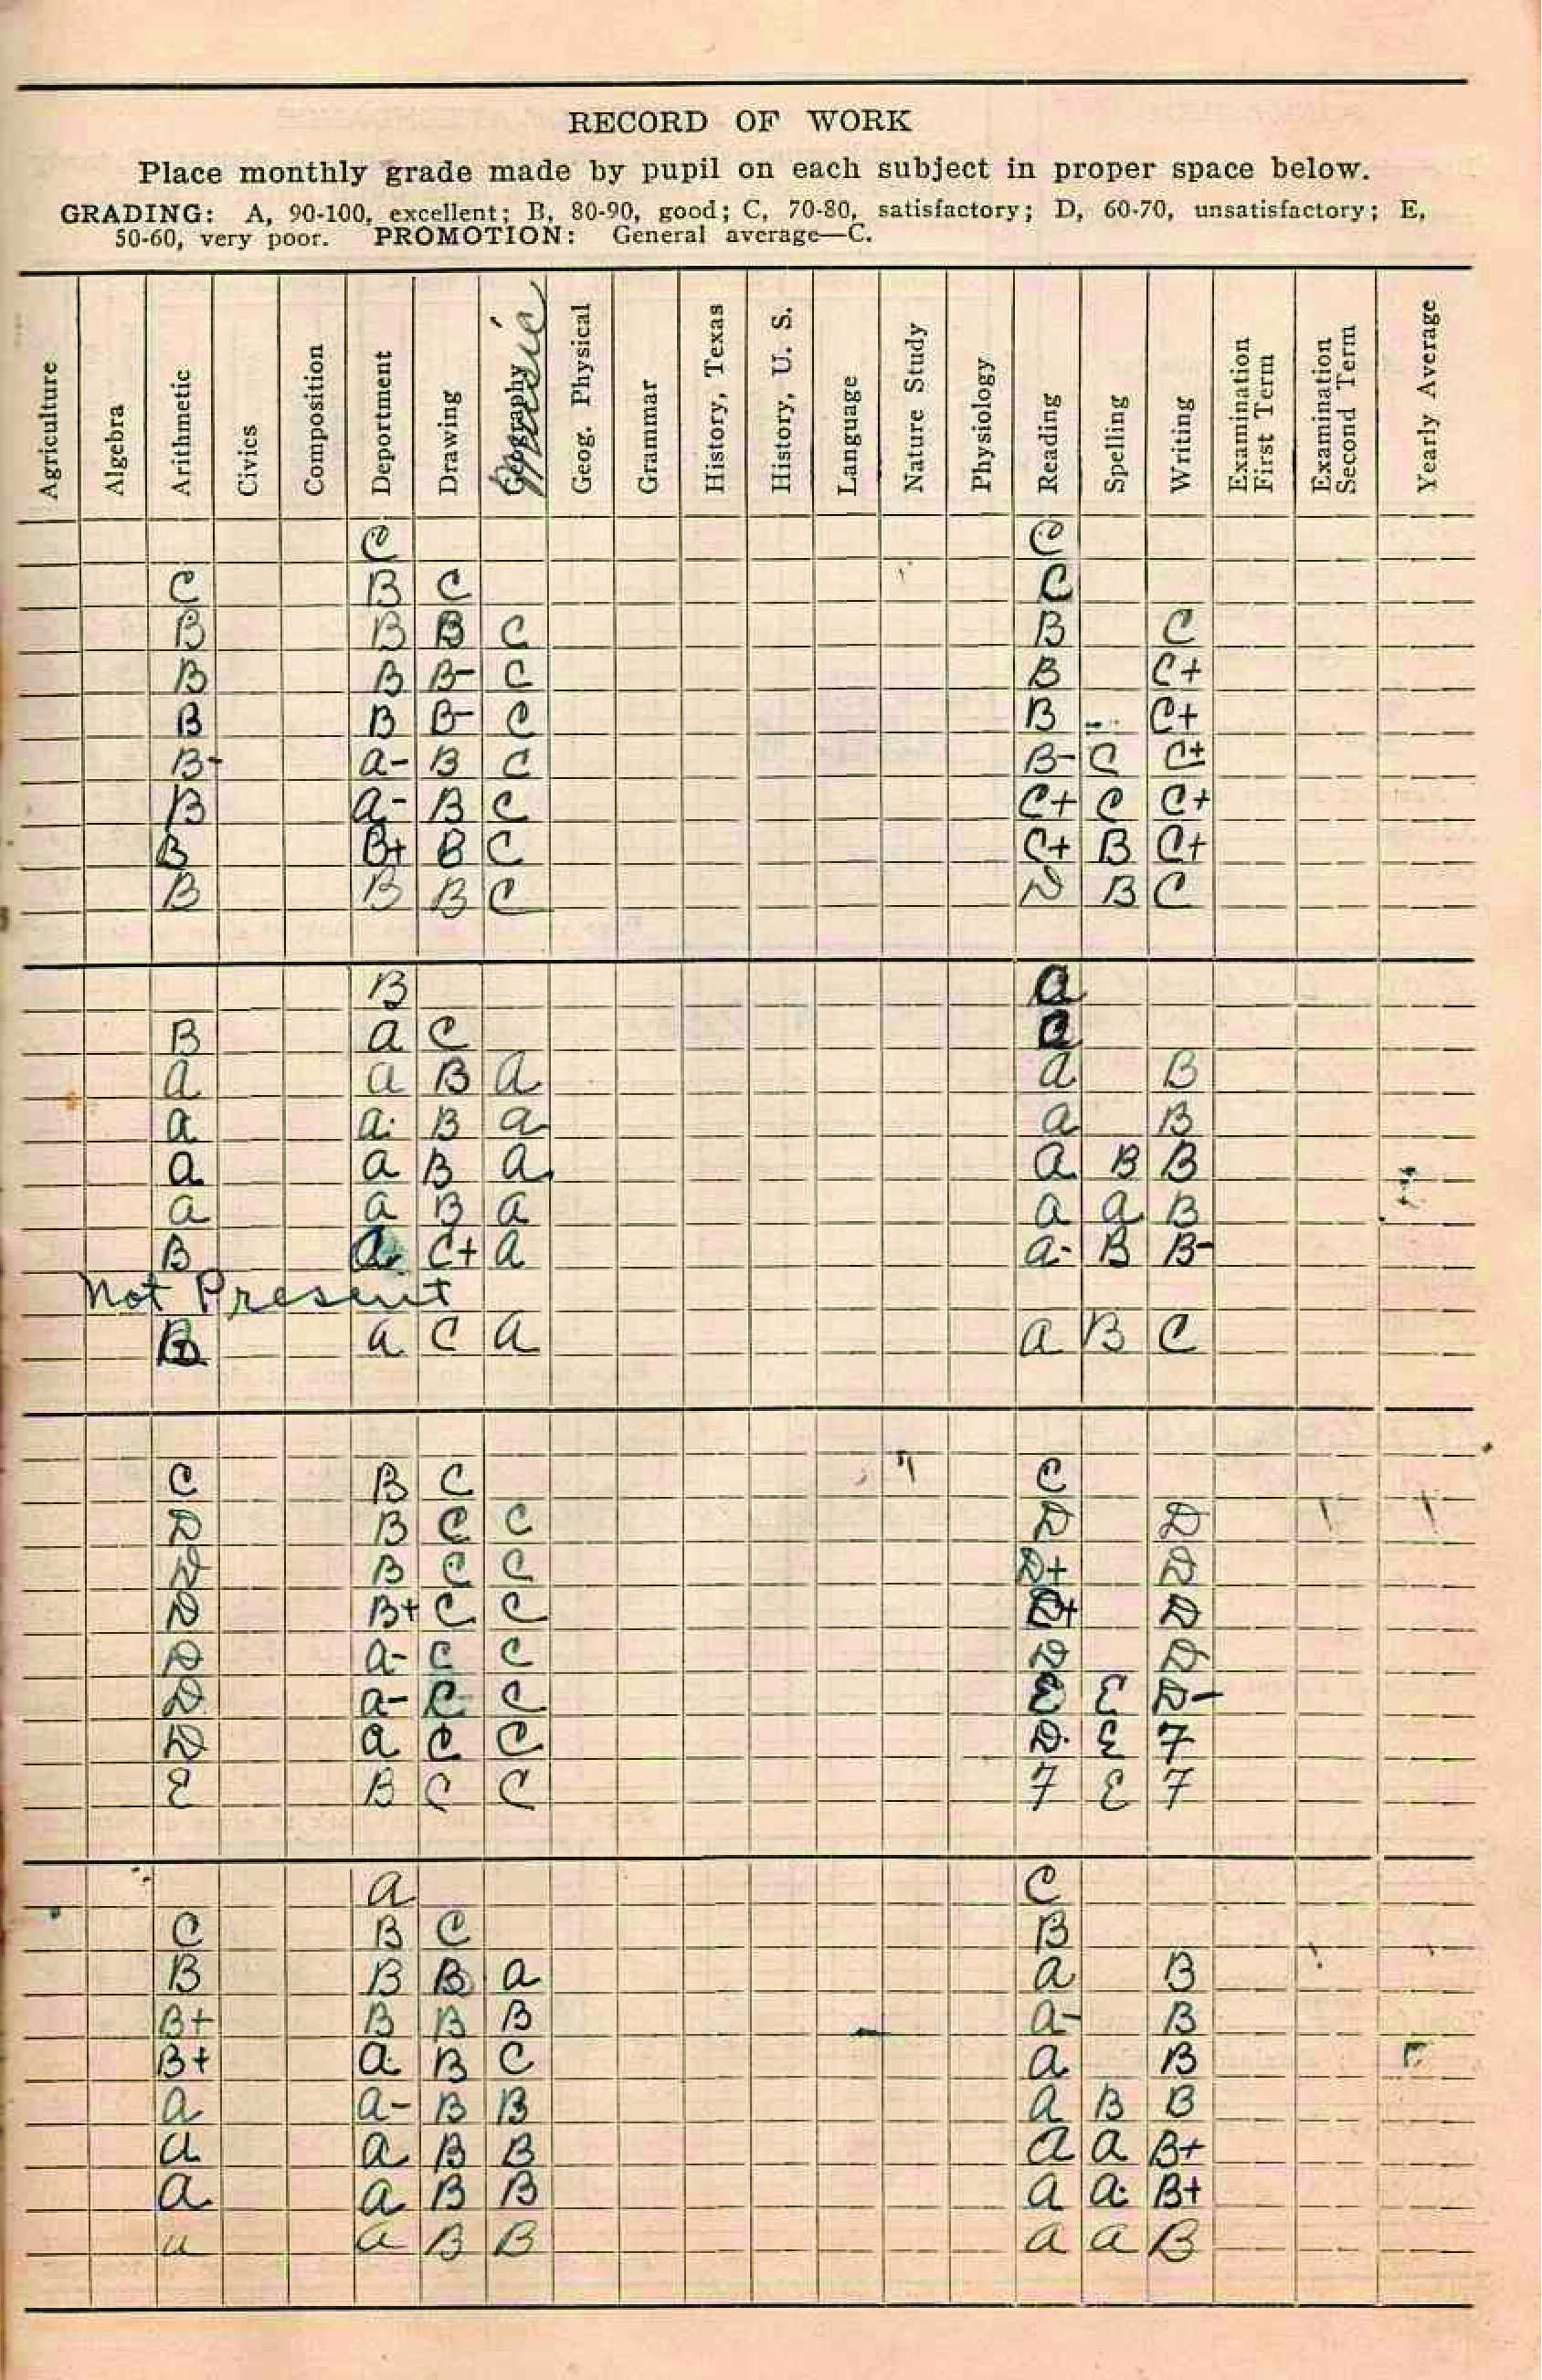 RECORD OF WORK
Place monthly grade made by pupil on each subject in proper space below.
GRADING: A, 90-100, excellent; B, 80-90, good; C, 70-80, satisfactory; D, 60-70, unsatisfactory; E,
50-60, very poor. PROMOTION: General average—C.
Agriculture Algebra Arithmetic Civics Composition Deportment Drawing Geography Music Geog. Physical Grammar History, Texas History, U. S. Language Nature Study Physiology Reading Spelling Writing Examination First Term Examination Second Term Yearly Average
C C
C B C C
B B B C B C
B B B- C B C+
B B B- C B C+
B- a- B C B- C C+
B a- B C C+ C C+
B B+ B C C+ B C+
B B B C D B C
B a
B a C
a a B a a B
a a B a a B
a a B a a B B
a a B a a a B
B a C+ a a- B B-
Not Present
B a C a a B C
C B C C
D B C C D D
D B C C D+ D
D B+ C C D+ D
D a- C C D D
D a- C C E E D-
D a C C D E F
E B C C F E F
a C
C B C B
B B B a a B
B+ B B B a- B
B+ a B C a B
a a- B B a B B
a a B B a a B+
a a B B a a B+
a a B B a a B